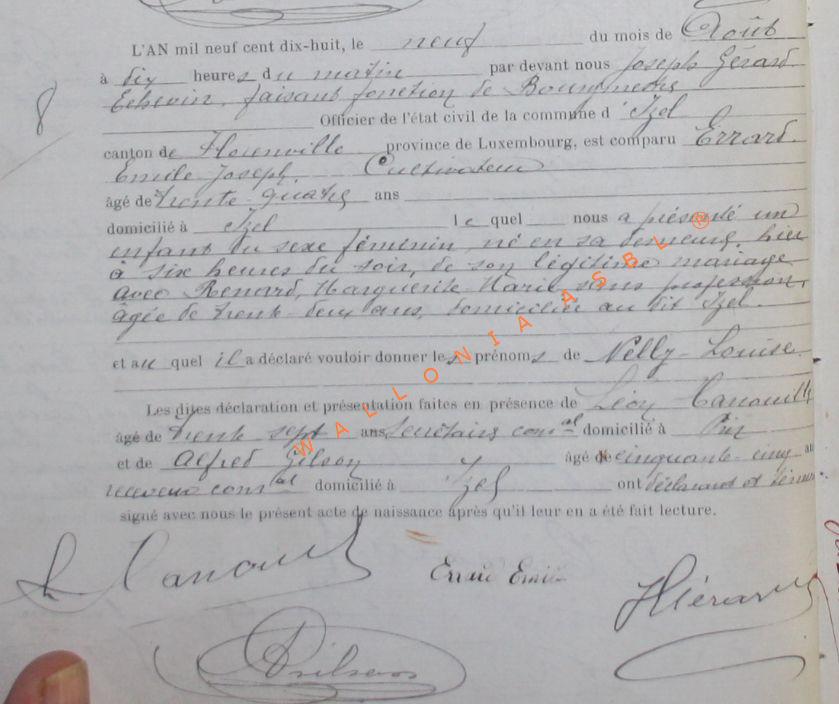 8
L'AN mil neuf cent dix-huit, le neuf du mois de Août
à dix heures du matin par devant nous Joseph Gérard
Echevin, faisant fonction de Bourgmestre
Officier de l'état civil de la commune d'Izel
canton de Florenville province de Luxembourg, est comparu Errard
Emile Joseph. Cultivateur
âgé de trente-quatre ans
domicilié à Izel lequel nous a présenté un
enfant du sexe féminin, né en sa demeure, hier
à six heures du soir, de son légitime mariage
avec Renard, Marguerite Marie sans profession,
âgée de trente-deux ans, domiciliée au dit Izel.
et auquel il a déclaré vouloir donner les prénoms de Nelly-Louise.
Les dites déclaration et présentation faites en présence de Léon
âgé de trente sept ans Secrétaire comal domicilié à Pin
et de Alfred Gilson âgé de cinquante-cinq
receveur comal domicilié à Izel ont déclarant et témoins
signé avec nous le présent acte de naissance après qu'il leur en a été fait lecture.
Errard Emile
WALLONIA ASBL ®